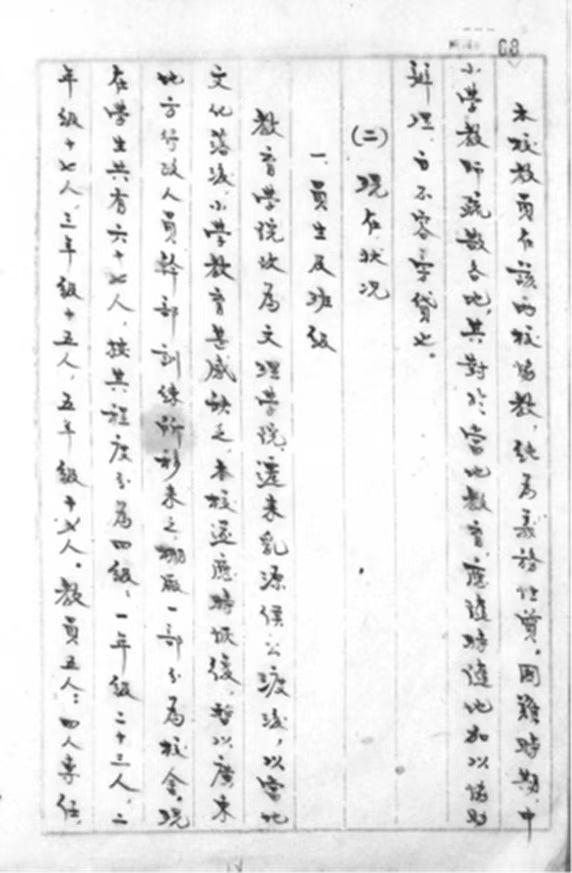 68
本校教員在該兩校協教，純為義務性質。困難時期，中
小學教師疏散各地，其對於當地教育，應隨時隨地加以協助
辦理，自不容旁貸也。
（二）現在狀況
一、員生及班級
教育學院改為文理學院，遷來乳源侯公渡後，以當地
文化落後，小學教育甚感缺乏，本校遂應時恢復，暫以廣東
地方行政人員幹部訓練所移來之棚廠一部分為校舍。現
在學生共有六十七人，按其程度分為四級，一年級二十三人，二
年級十七人，三年級十五人，五年級十七人。教員五人：四人專任，